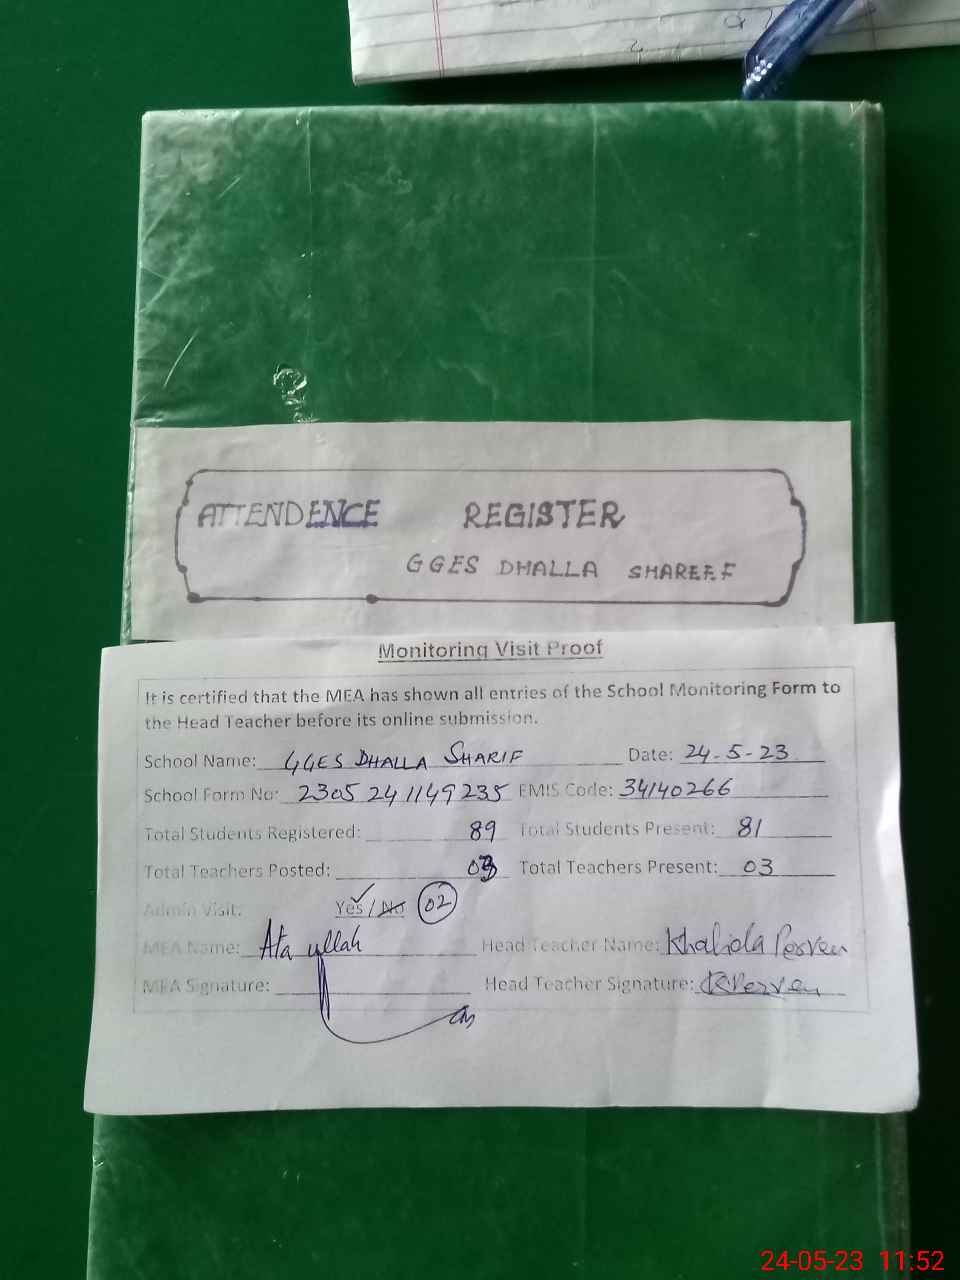 ATTENDENCE REGISTER
GGES DHALLA SHAREEF
Monitoring Visit Proof
It is certified that the MEA has shown all entries of the School Monitoring Form to
the Head Teacher before its online submission.
School Name: GGES DHALLA SHARIF Date: 24-5-23
School Form No: 2305 241149235 EMIS Code: 34140266
Total Students Registered: 89 Total Students Present: 81
Total Teachers Posted: 03 Total Teachers Present: 03
Admin Visit: Yes / No 02
MEA Name: Ata ullah Head Teacher Name: Khalida Perven
MEA Signature: Head Teacher Signature: KPerven
24-05-23 11:52